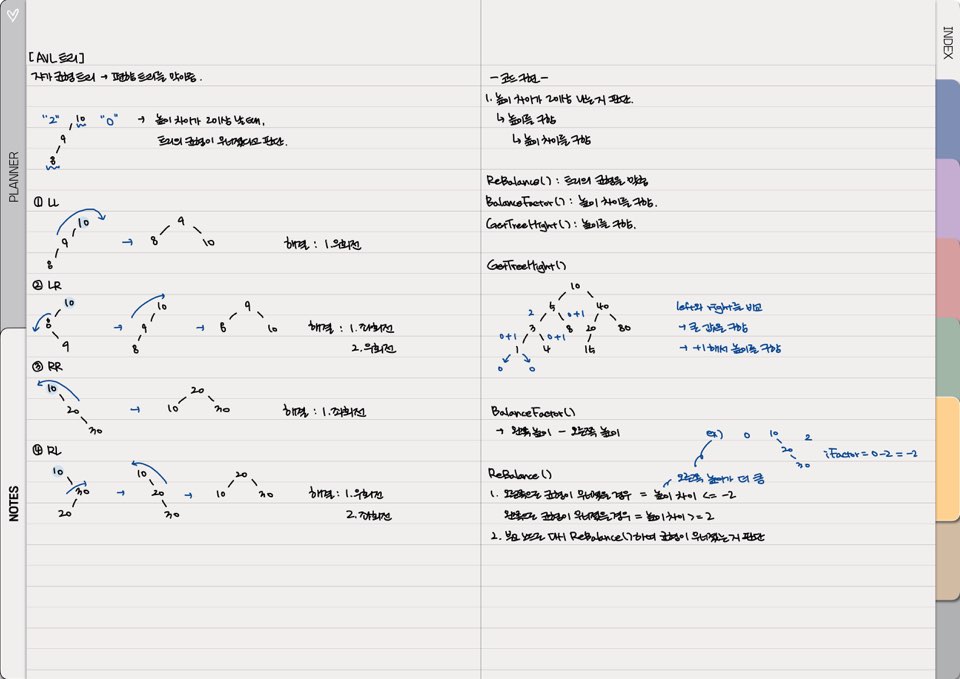 PLANNER
NOTES
INDEX
[AVL 트리]
자가 균형 트리 → 편향 트리를 막아줌.
"2" 10 "0" → 높이 차이가 2이상 날 때,
9 트리의 균형이 무너졌다고 판단.
8
① LL
10
9 → 9
8 8 10
해결 : 1. 우회전
② LR
10
8 → 10
9 9
8 → 9
8 10
해결 : 1. 좌회전
2. 우회전
③ RR
10
20 → 20
30 10 30
해결 : 1. 좌회전
④ RL
10
30 → 10
20 20
30 → 20
10 30
해결 : 1. 우회전
2. 좌회전
- 코드 구현 -
1. 높이 차이가 2이상 나는지 판단.
↳ 높이를 구함
↳ 높이 차이를 구함
ReBalance() : 트리의 균형을 맞춤
BalanceFactor() : 높이 차이를 구함.
GetTreeHight() : 높이를 구함.
GetTreeHight()
10
2 5 0+1 40
3 8 20 80
0+1 1 0+1 4 15
0 0
left와 right를 비교
→ 큰 값을 구함
→ +1 해서 높이를 구함
BalanceFactor()
→ 왼쪽 높이 - 오른쪽 높이
ex) 0 10 2
20
30
iFactor = 0-2 = -2
ReBalance()
오른쪽 높이가 더 큼
1. 오른쪽으로 균형이 무너졌을 경우 = 높이 차이 <= -2
왼쪽으로 균형이 무너졌을 경우 = 높이 차이 >= 2
2. 노드로 다시 ReBalance()하여 균형이 무너졌는지 판단